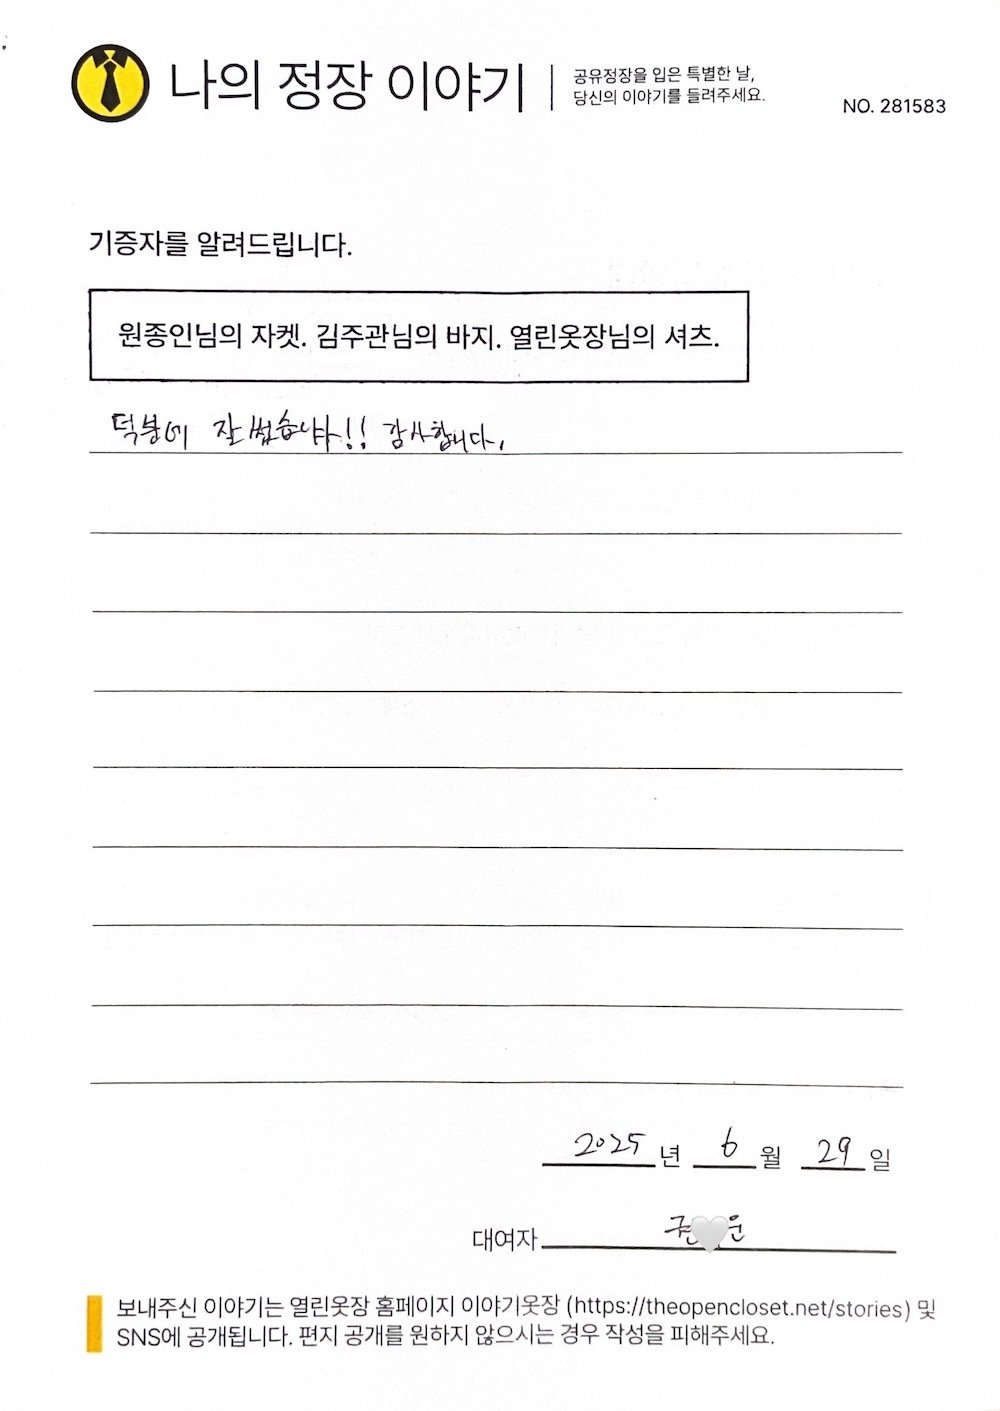 나의 정장 이야기
공유정장을 입은 특별한 날,
당신의 이야기를 들려주세요.
NO. 281583
기증자를 알려드립니다.
원종인님의 자켓. 김주관님의 바지. 열린옷장님의 셔츠.
덕분에 잘 썼습니다!! 감사합니다.
2025 년 6 월 29 일
대여자
보내주신 이야기는 열린옷장 홈페이지 이야기옷장 (https://theopencloset.net/stories) 및
SNS에 공개됩니다. 편지 공개를 원하지 않으시는 경우 작성을 피해주세요.